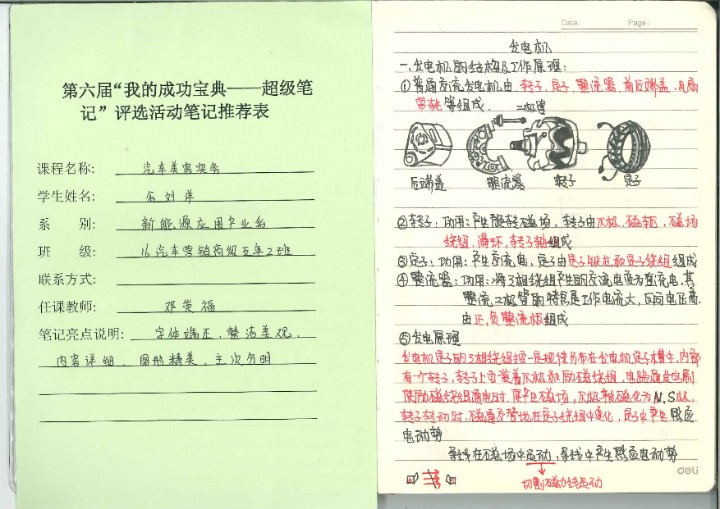 第六届“我的成功宝典——超级笔
记”评选活动笔记推荐表
课程名称: 汽车美容实务
学生姓名: 刘洋
系 别: 新能源应用产业系
班 级: 16汽车营销高级五年2班
联系方式:
任课教师: 邓荣福
笔记亮点说明: 字体端正、整洁美观、
内容详细、图形精美、主次分明
Date: Page:
发电机
一、发电机的结构及工作原理:
①普通交流发电机由 转子、定子、整流器、前后端盖、风扇
带轮等组成. 二极管
后端盖 整流器 转子 定子
②转子:功用:产生旋转磁场, 转子由爪极、磁轭、磁场
绕组、滑环、转子轴组成
③定子:功用:产生交流电, 定子由定子铁芯和定子绕组组成
④整流器:功用:将3相绕组产生的交流电变为直流电, 其
整流二极管的特点是工作电流大, 反向电压高.
由正,负整流板组成
⑤发电原理
发电机定子的3相绕组按一定规律分布在发电机定子槽中,内部
有一个转子,转子上安装着爪极和励磁绕组,电路通过电刷
使励磁绕组通电时,产生磁场,爪极被磁化为N,S极,
转子转动时,磁通交替地在定子绕组中变化,定子中产生感应
电动势
导线在磁场中运动,导线中产生感应电动势
切割磁力线运动
deli